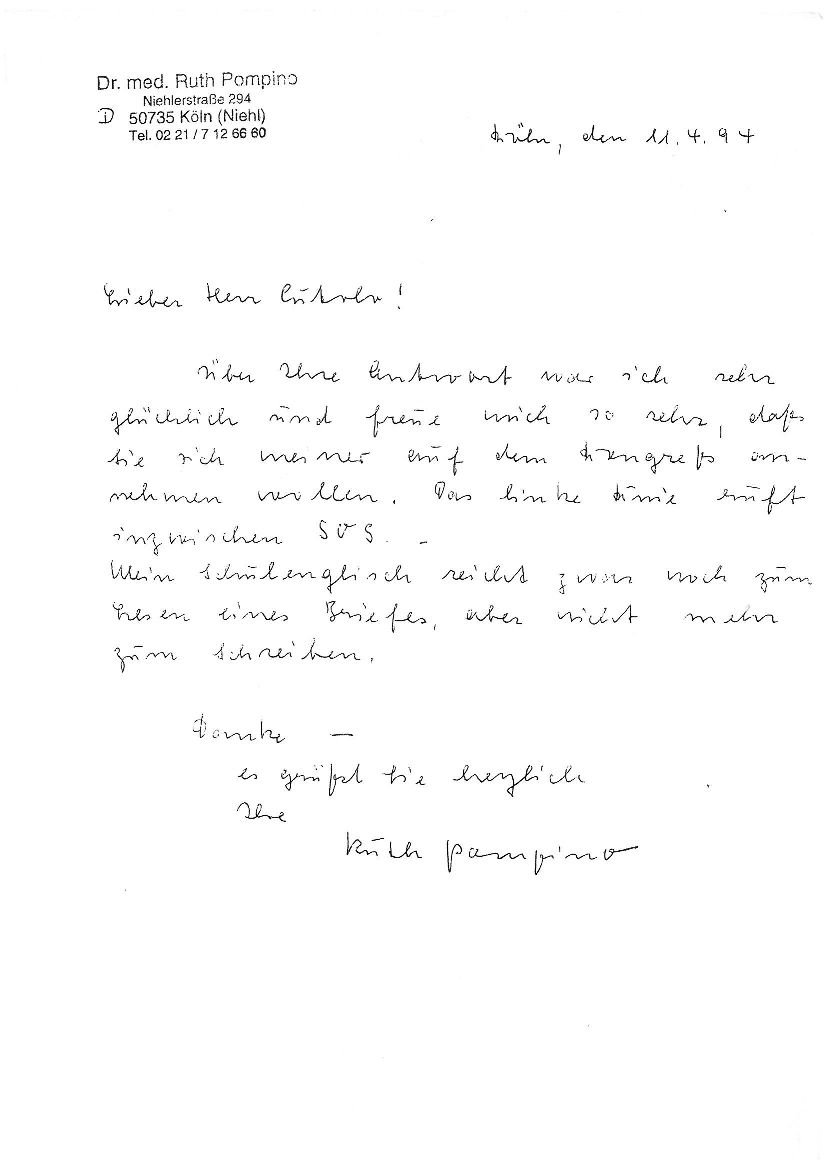 Dr. med. Ruth Pompino
Niehlerstraße 294
D 50735 Köln (Niehl)
Tel. 02 21 / 7 12 66 60
Köln, den 11. 4. 94
Lieber Herr !
Über Ihre Antwort war ich sehr
glücklich und freue mich so sehr, daß
Sie sich meiner auf dem Kongreß an-
nehmen wollen. Das linke Knie ruft
inzwischen SOS. –
Mein Schulenglisch reicht zwar noch zum
Lesen eines Briefes, aber nicht mehr
zum Schreiben.
Danke –
es grüßt Sie herzlich
Ihre
Ruth Pompino